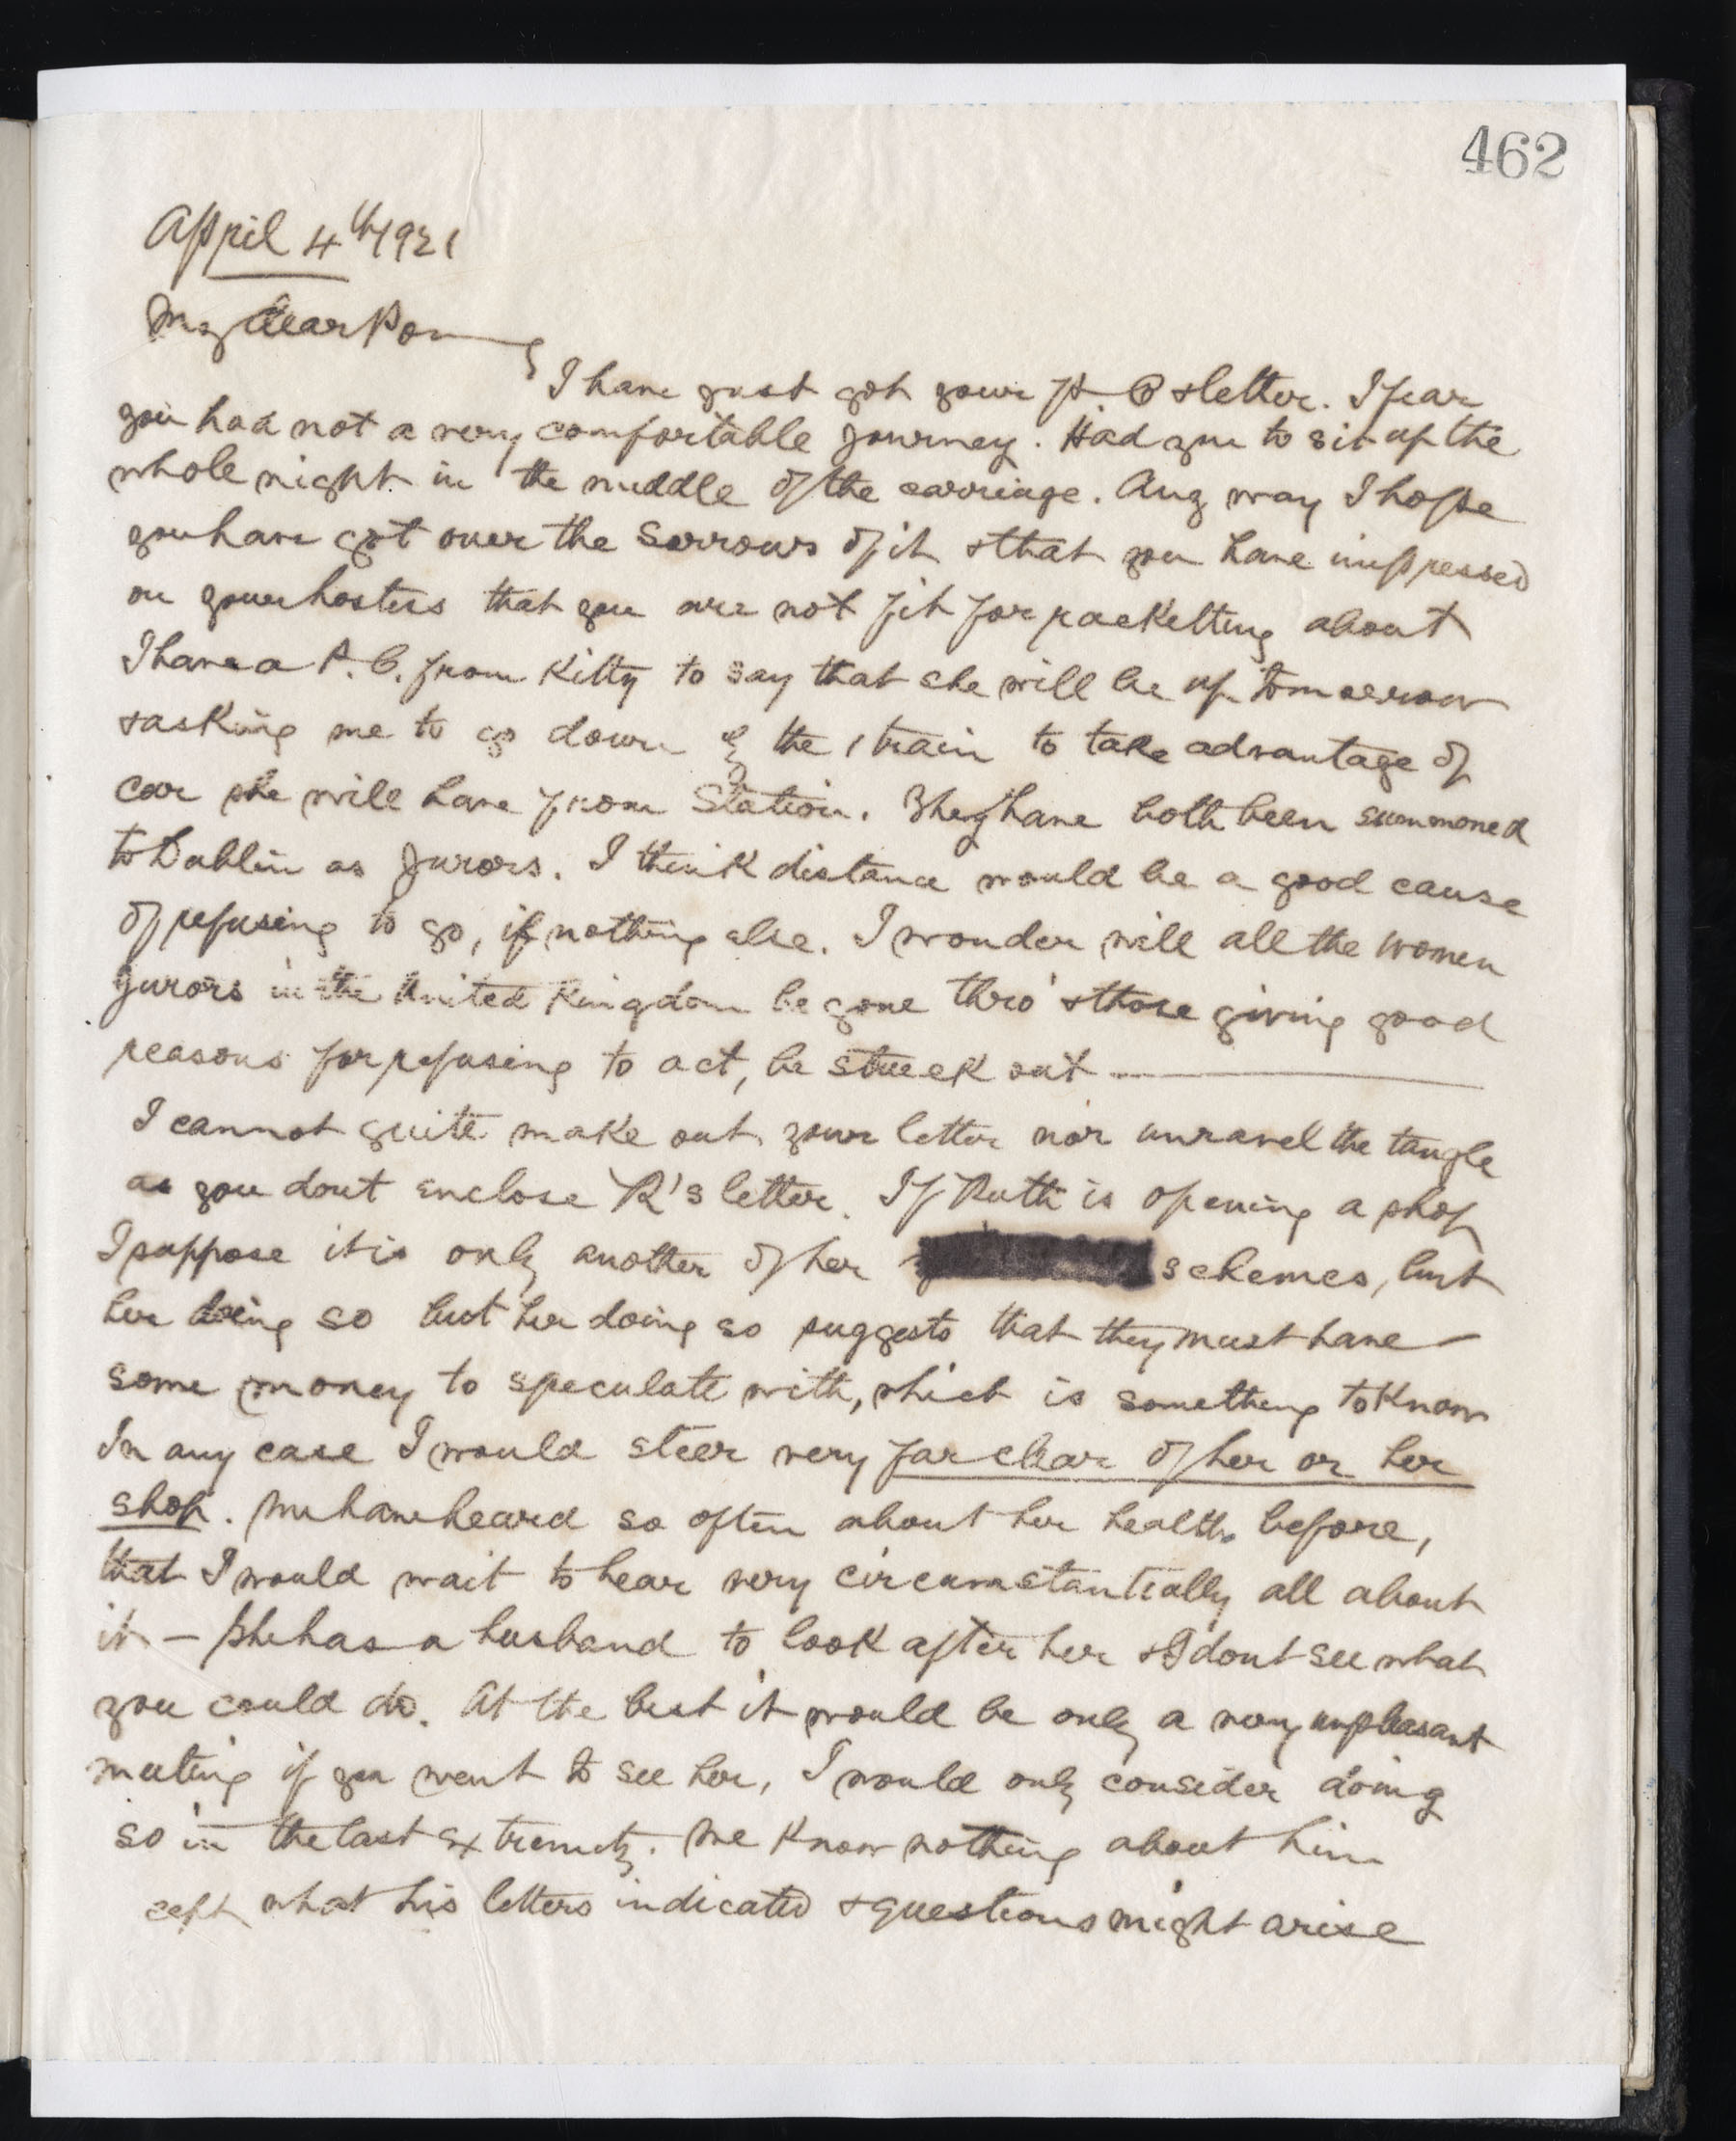 462
April 4th 1921
My dear Pom
I have just got your p. c & letter. I fear
you had not a very comfortable journey. Had you to sit up the
whole night in the middle of the carriage. Any way I hope
you have got over the sorrows of it & that you have impressed
on your hostess that you are not fit for racketting about
I have a P.C. from Kitty to say that she will be up tomorrow
& asking me to go down by the 1 train to take advantage of
car she will have from Station. They have both been summoned
to Dublin as jurors. I think distance would be a good cause
of refusing to go, if nothing else. I wonder will all the women
jurors in the United Kingdom be gone thro' & those giving good
reasons for refusing to act, be struck out —
I cannot quite make out your letter nor unravel the tangle
as you dont enclose R's letter. If Ruth is opening a shop
I suppose it is only another of her schemes, but
her doing so but her doing so suggests that they must have —
some money to speculate with, which is something to know
In any case I would steer very far clear of her or her
shop. We have heard so often about her health before,
that I would wait to hear very circumstantially all about
it — she has a husband to look after her & I dont see what
you could do. At the best it would be only a very unpleasant
meeting if you went to see her, I would only consider doing
so in the last extremity. We know nothing about him
cept what his letters indicated & questions might arise